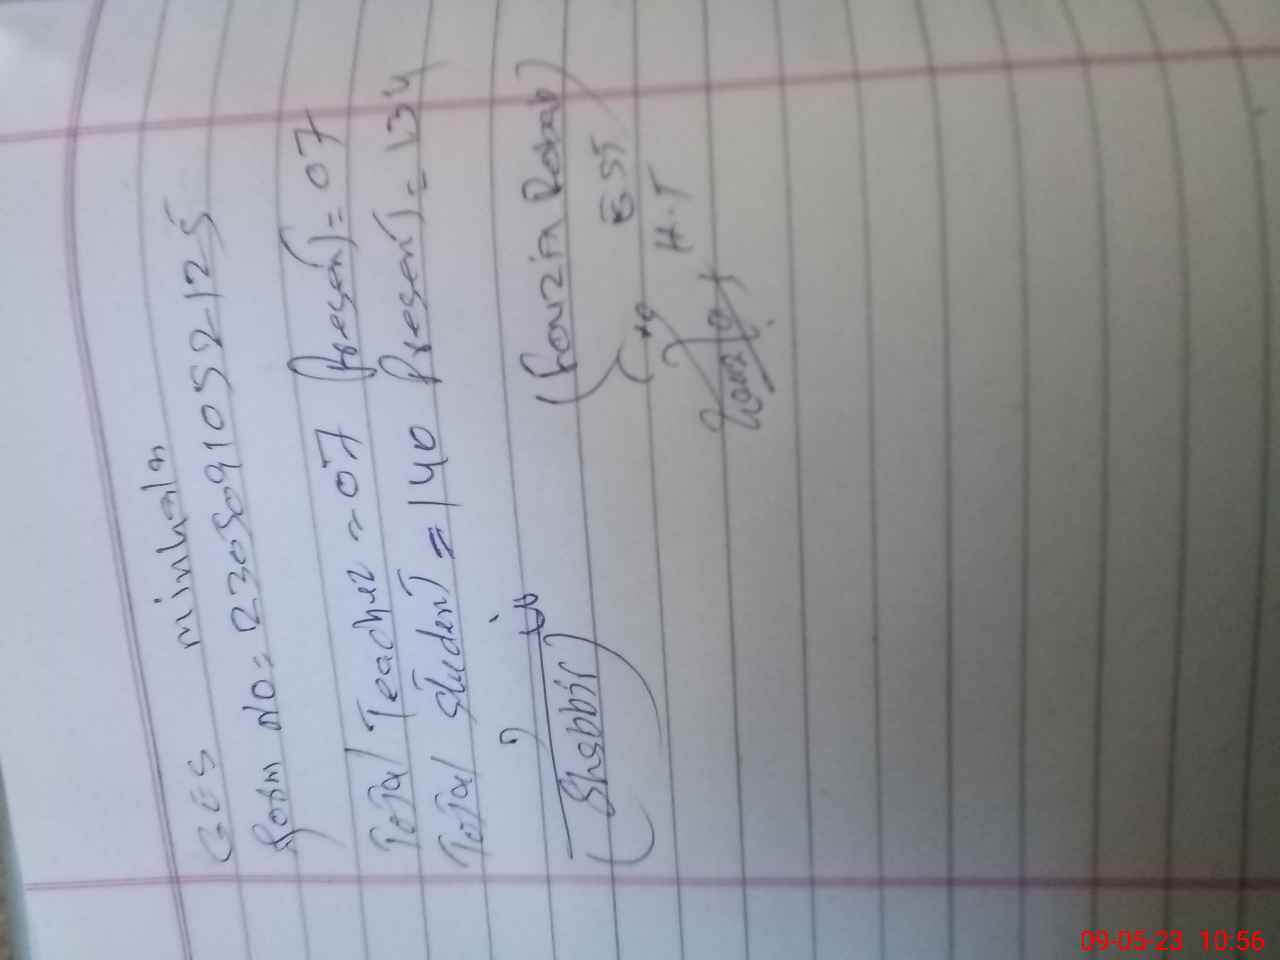 GES minhala
Form No = 23050910592125
Total Teacher = 07 Present = 07
Total Student = 140 Present = 134
(Shabbir)
(Fouzia Rabab)
EST
H.T
09-05-23 10:56